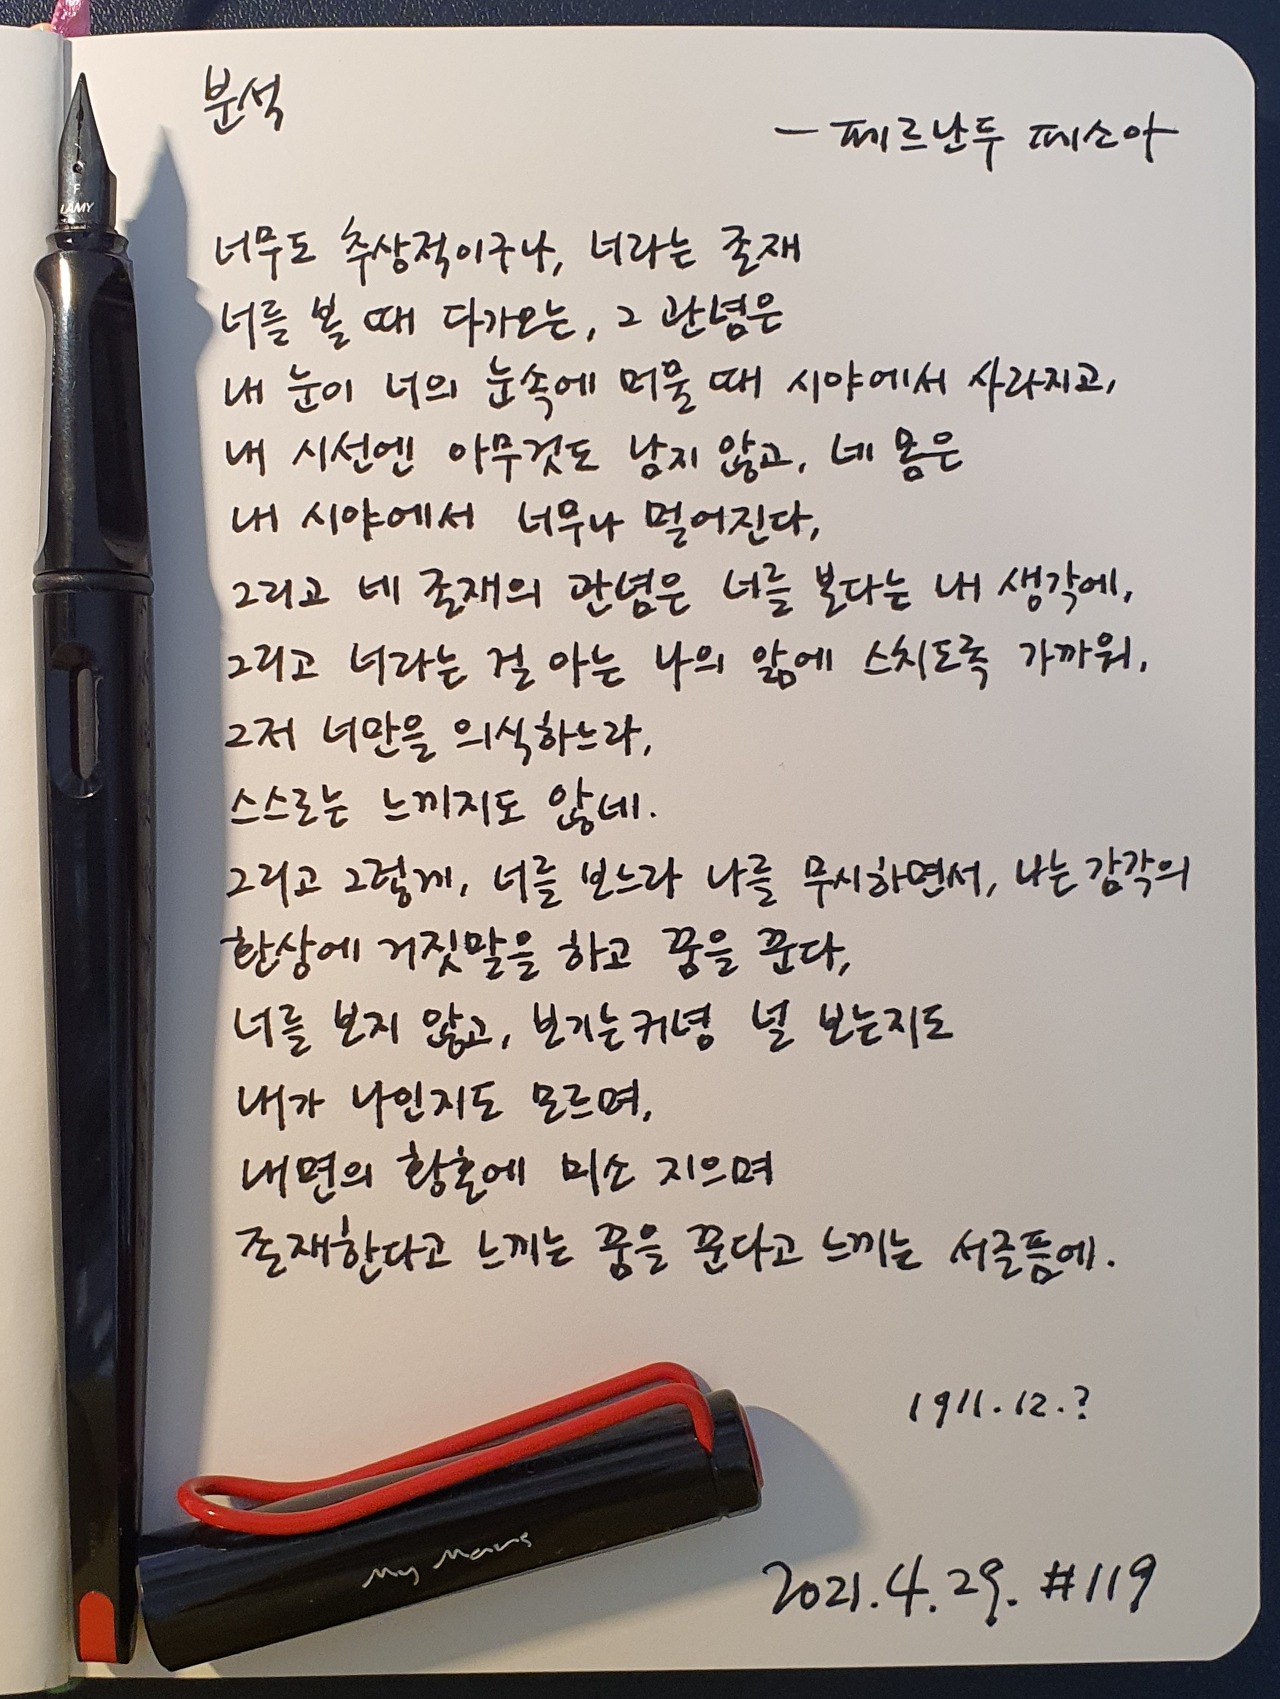 분석
- 페르난두 페소아
너무도 추상적이구나, 너라는 존재
너를 볼 때 다가오는, 그 관념은
내 눈이 너의 눈속에 머물 때 시야에서 사라지고,
내 시선엔 아무것도 남지 않고, 네 몸은
내 시야에서 너무나 멀어진다,
그리고 네 존재의 관념은 너를 보다는 내 생각에,
그리고 너라는 걸 아는 나의 앎에 스치도록 가까워,
그저 너만을 의식하느라,
스스로는 느끼지도 않네.
그리고 그렇게, 너를 보느라 나를 무시하면서, 나는 감각의
환상에 거짓말을 하고 꿈을 꾼다,
너를 보지 않고, 보기는커녕 널 보는지도
내가 나인지도 모르며,
내면의 황혼에 미소 지으며
존재한다고 느끼는 꿈을 꾼다고 느끼는 서글픔에.
1911.12.?
2021.4.29. #119
F
LAMY
My Mars